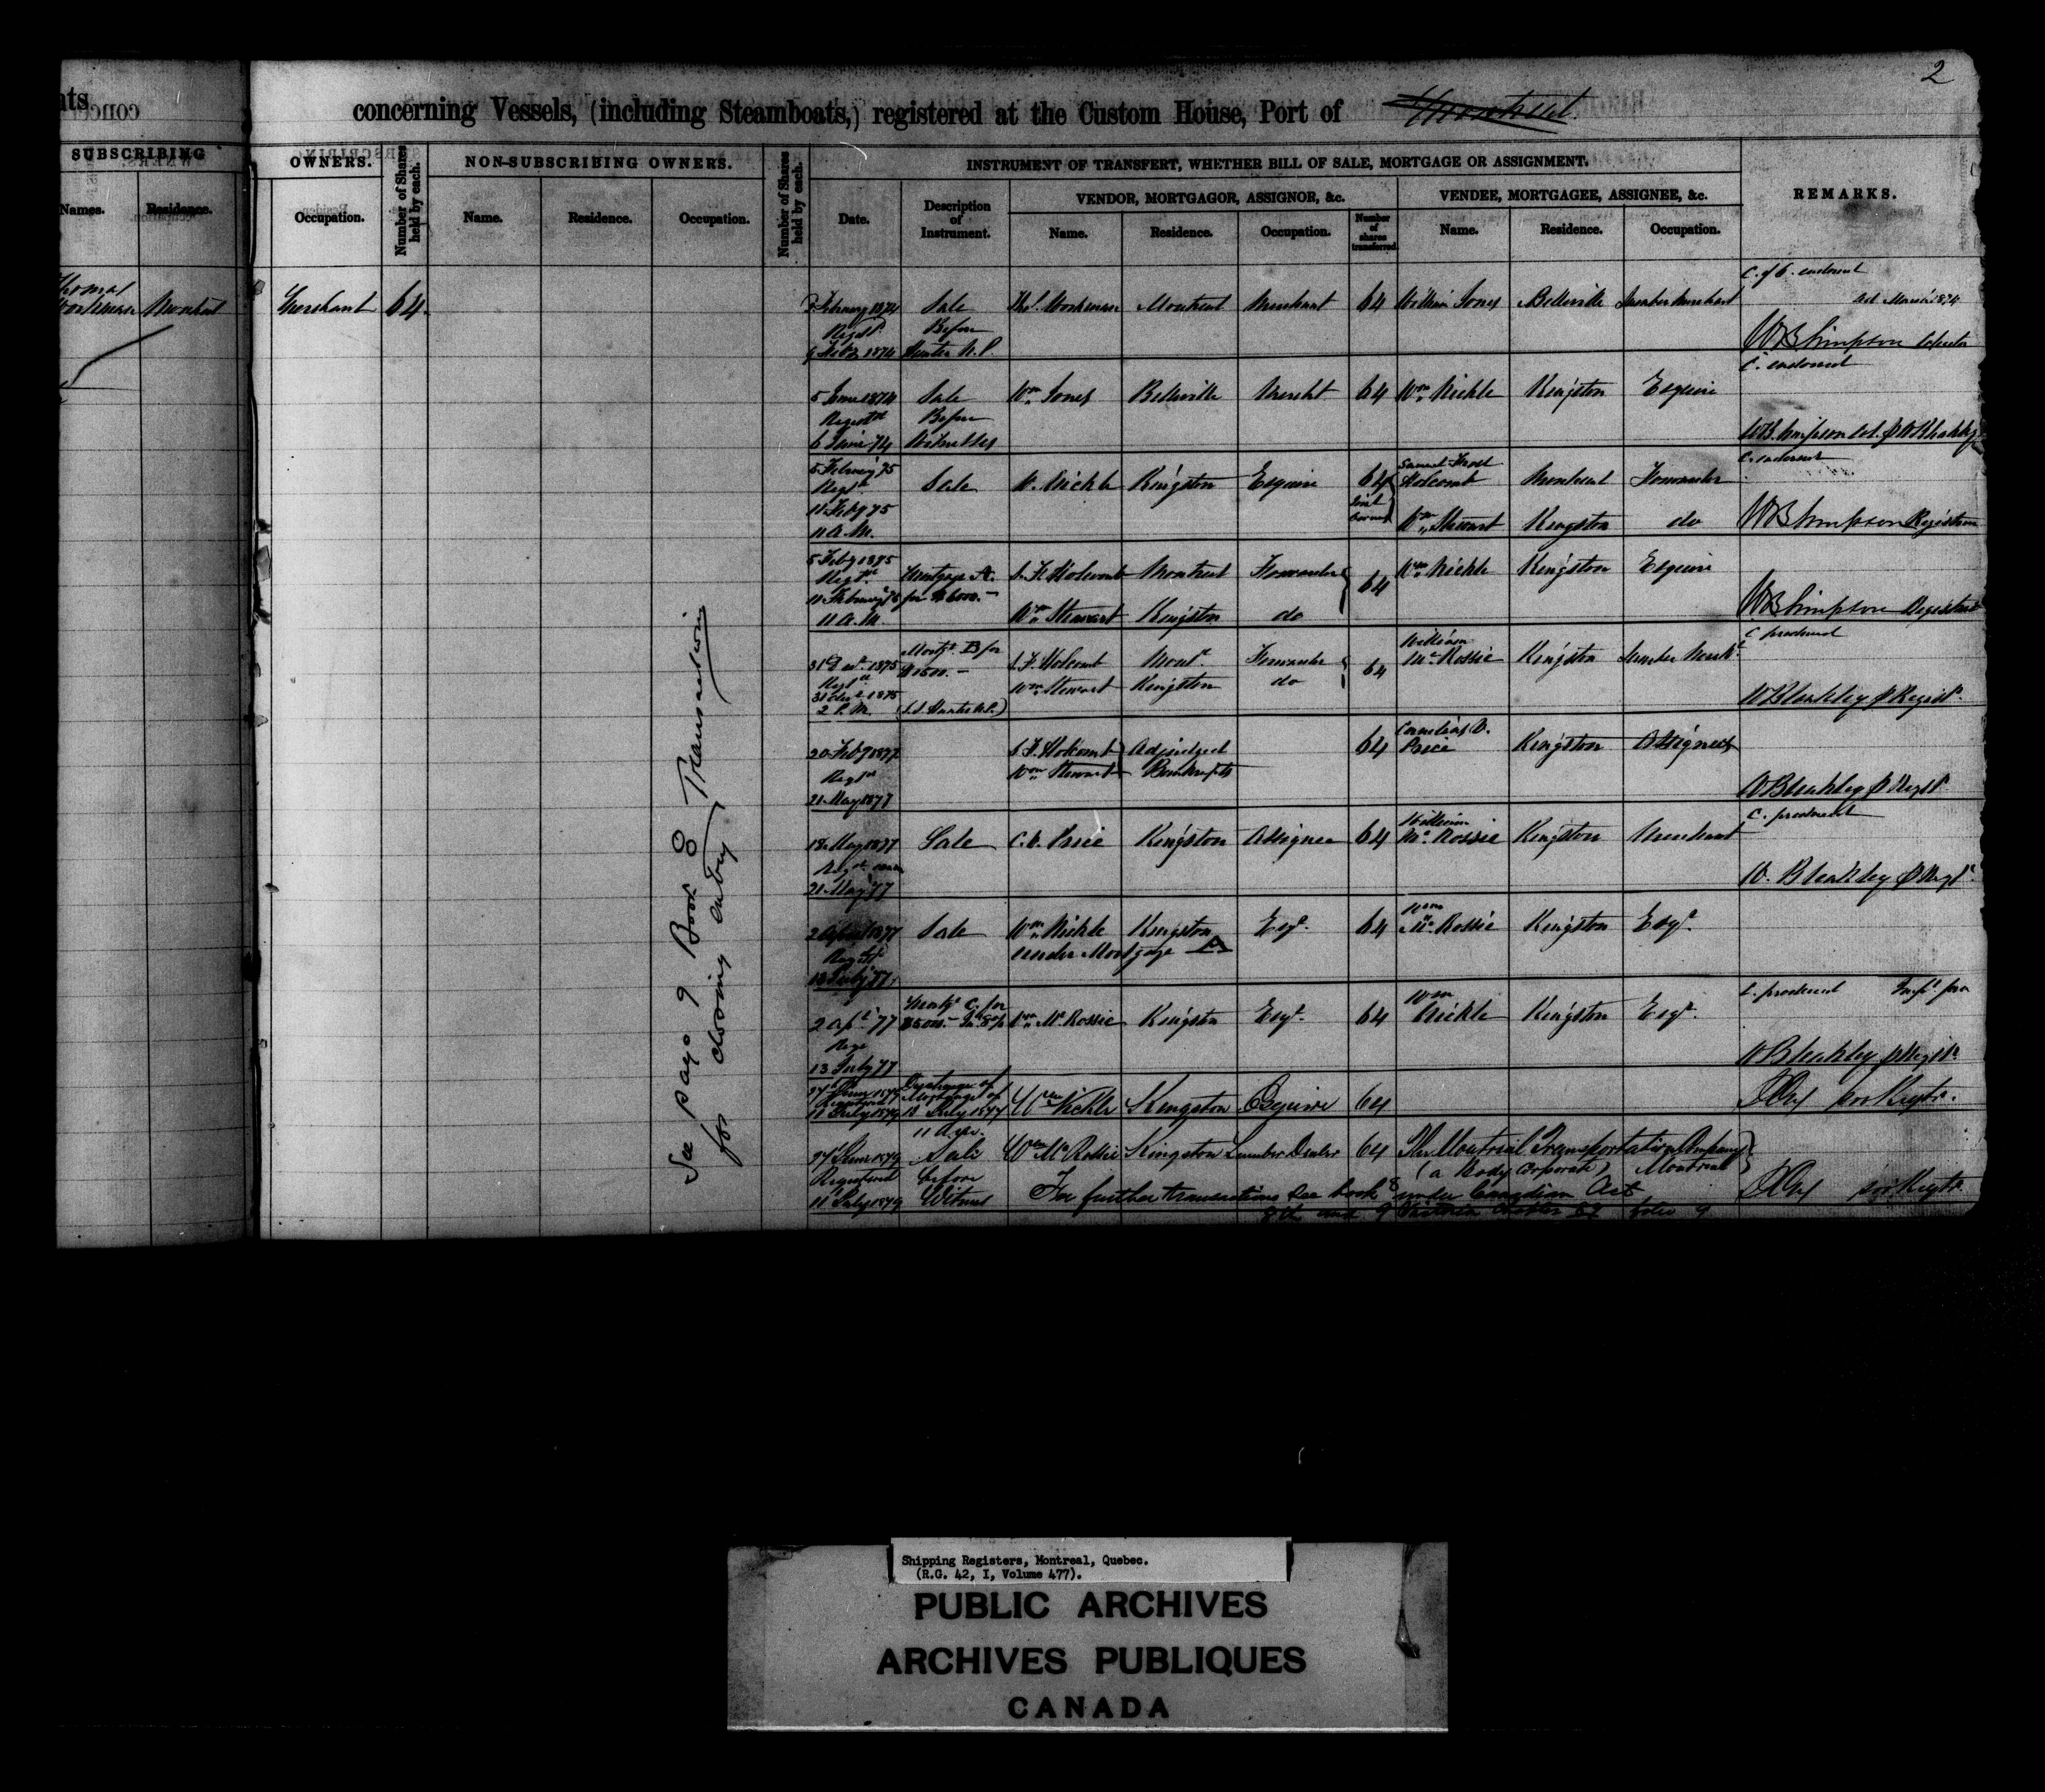 2
concerning Vessels, (including Steamboats,) registered at the Custom House, Port of Montreal
SUBSCRIBING
OWNERS.
Number of Shares held by each.
NON-SUBSCRIBING OWNERS.
Number of Shares held by each.
INSTRUMENT OF TRANSFERT, WHETHER BILL OF SALE, MORTGAGE OR ASSIGNMENT.
REMARKS.
VENDOR, MORTGAGOR, ASSIGNOR, &c.
VENDEE, MORTGAGEE, ASSIGNEE, &c.
Names. Residence. Occupation. Name. Residence. Occupation. Date. Description of Instrument. Name. Residence. Occupation. Number of shares transferred. Name. Residence. Occupation.
Thomas
Montreal Merchant 64
February 1874 Sale Thos. Workman Montreal Merchant 64 William Jones Belleville Lumber Merchant
Regd. Before
9 Feby 1874 Hunter N.P.
C. of O. endorsed
WB Simpson
C. endorsed
5 June 1874 Sale Wm Jones Belleville Mercht 64 Wm Nickle Kingston Esquire
Registd Before
6 June 74 Witnesses
WB Simpson Col. WBleakley
C. endorsed
5 Februy 75 Sale W. Nickle Kingston Esquire 64 Samuel Frost Holcomb Montreal Forwarder
Regd
11 Feby 75
11 A.M.
Joint owners
Wm Stewart Kingston do
WB Simpson Registrar
5 Feby 1875 Mortgage A. S. F. Holcomb Montreal Forwarder 64 Wm Nickle Kingston Esquire
Registd
11 Februy 75 for $6000.-
11 A.M. Wm Stewart Kingston do
WB Simpson Registrar
C. produced
31 Dec. 1875 Mortg. B for $1500.- S. F. Holcomb Mont. Forwarder 64 William McRossie Kingston Lumber Mercht
Regd
31 Dec 1875 Wm Stewart Kingston do
2 P.M. (J.S. Hunter N.P.)
WBleakley Regist.
20 Feby 1877 S. F. Holcomb Adjudged 64 Cornelius V. Price Kingston Assignee
Regd Wm Stewart Bankrupts
21 May 1877
WBleakley Regst.
C. produced
18 May 1877 Sale C. V. Price Kingston Assignee 64 William McRossie Kingston Merchant
21 May 77
W. Bleakley Regst.
2 April 1877 Sale Wm Nickle Kingston Esqr. 64 Wm McRossie Kingston Esqr.
Regd under Mortgage A
13 July 77
C. produced
2 Apl 77 Mortg. C. for Wm McRossie Kingston Esqr. 64 Wm Nickle Kingston Esqr.
Regd
13 July 77
WBleakley Regst.
27 June 1879 Discharge of Mortgage of Wm Nickle Kingston Esquire 64
Registered
11 July 1879 13 July 1877
11 A.M.
27 June 1879 Sale Wm McRossie Kingston Lumber Dealer 64 The Montreal Transportation Company
Registered before (a Body Corporate) Montreal
11 July 1879 Witness For further transactions see book 8 under Canadian Act
and 9 Victoria Chapter folio 9
See page 9 Book 8 Transactions
for closing entry
Shipping Registers, Montreal, Quebec.
(R.G. 42, I, Volume 477).
PUBLIC ARCHIVES
ARCHIVES PUBLIQUES
CANADA